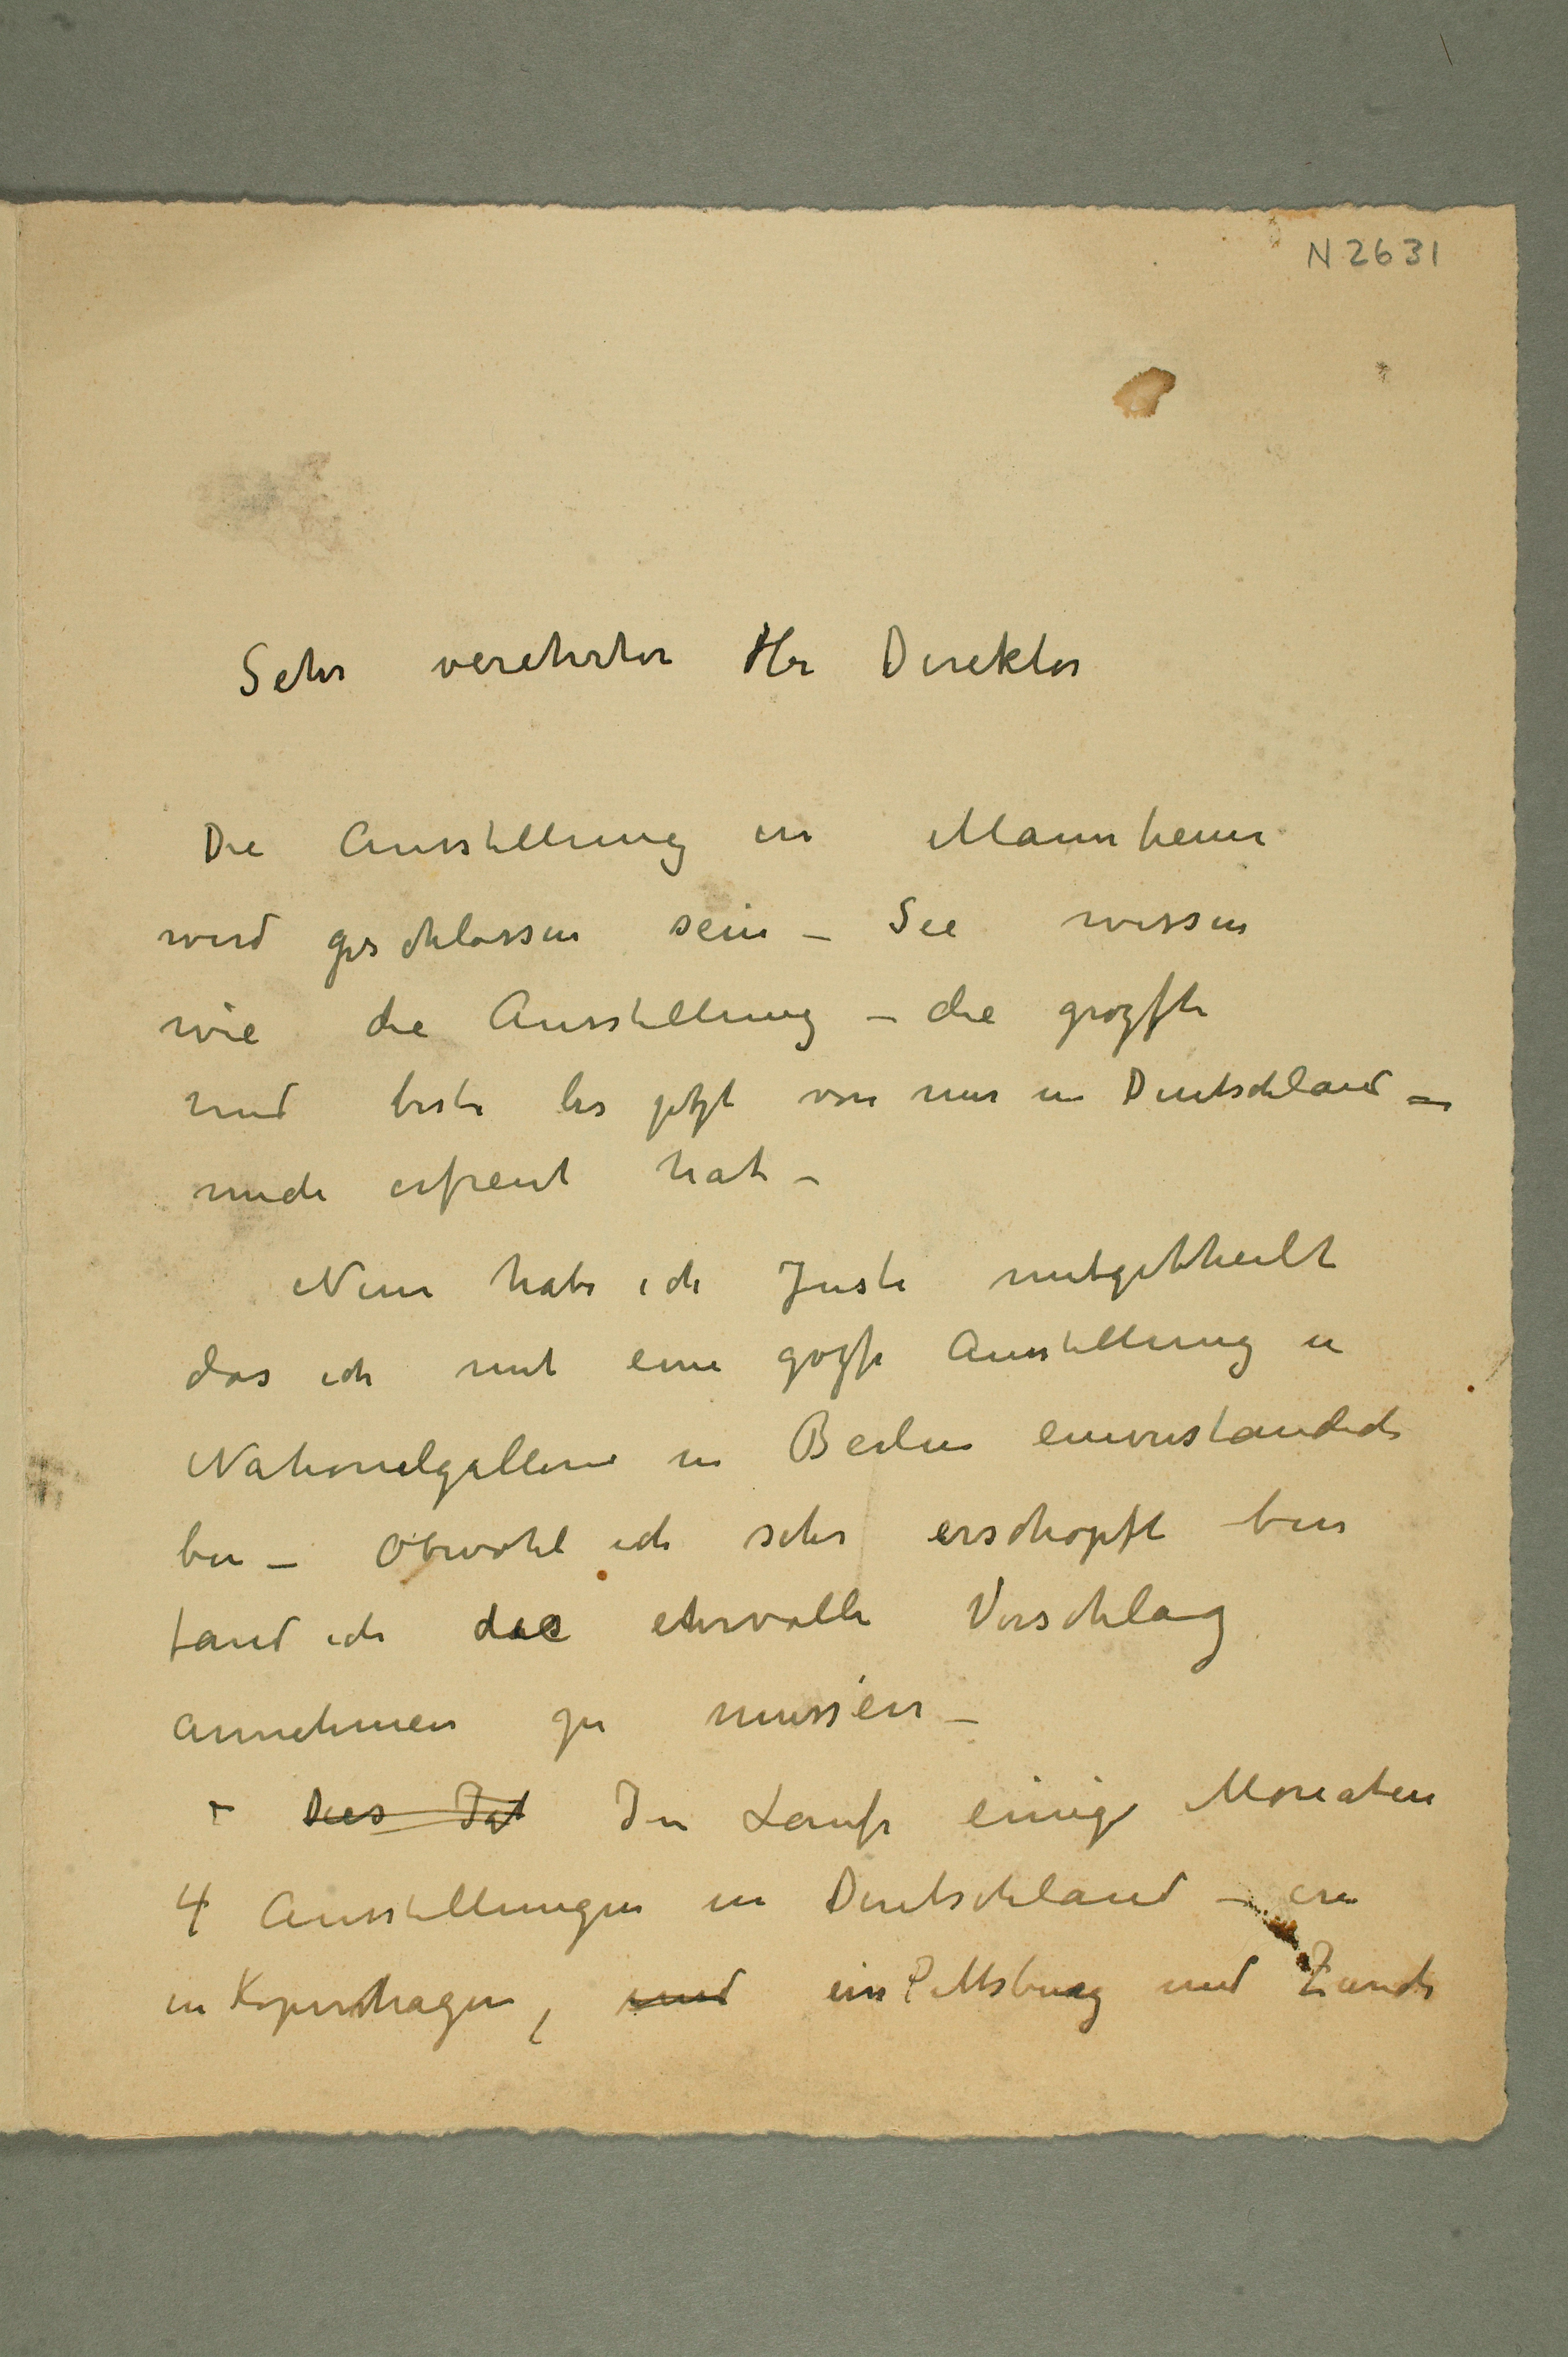 N 2631
Sehr verehrter Hr Direktor
Die Ausstellung in Mannheim
wird geschlossen sein – Sie wissen
wie die Ausstellung – die grozste
und beste bis jetzt von mir in Deutschland –
mich erfreut hat –
Nun habe ich Justi mitgetheilt
das ich mit eine grozse Ausstellung in
Nationalgallerie in Berlin einverstanden
bin – Obwohl ich sehr erschopft bin
fand ich das ehrvolle Vorschlag
annehmen zu mussen –
– Dies Jat In Laufe einige Monaten
4 Ausstellungen in Deutschland –
in Kopenhagen, und in Pittsburg und Zurich